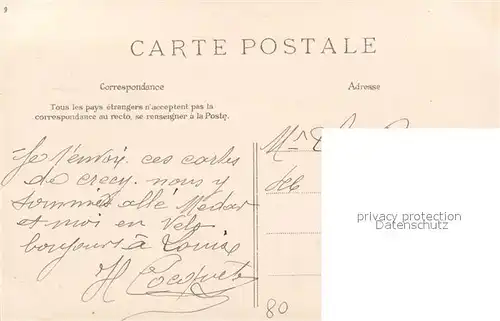 9
CARTE POSTALE
Correspondance
Adresse
Tous les pays étrangers n'acceptent pas la
correspondance au recto, se renseigner à la Poste.
Je t'envoi ces cartes
de crecy. nous y
sommes allé Medar
et moi en Velo
bonjours à Louise
H Cocquet
privacy protection
Datenschutz
80